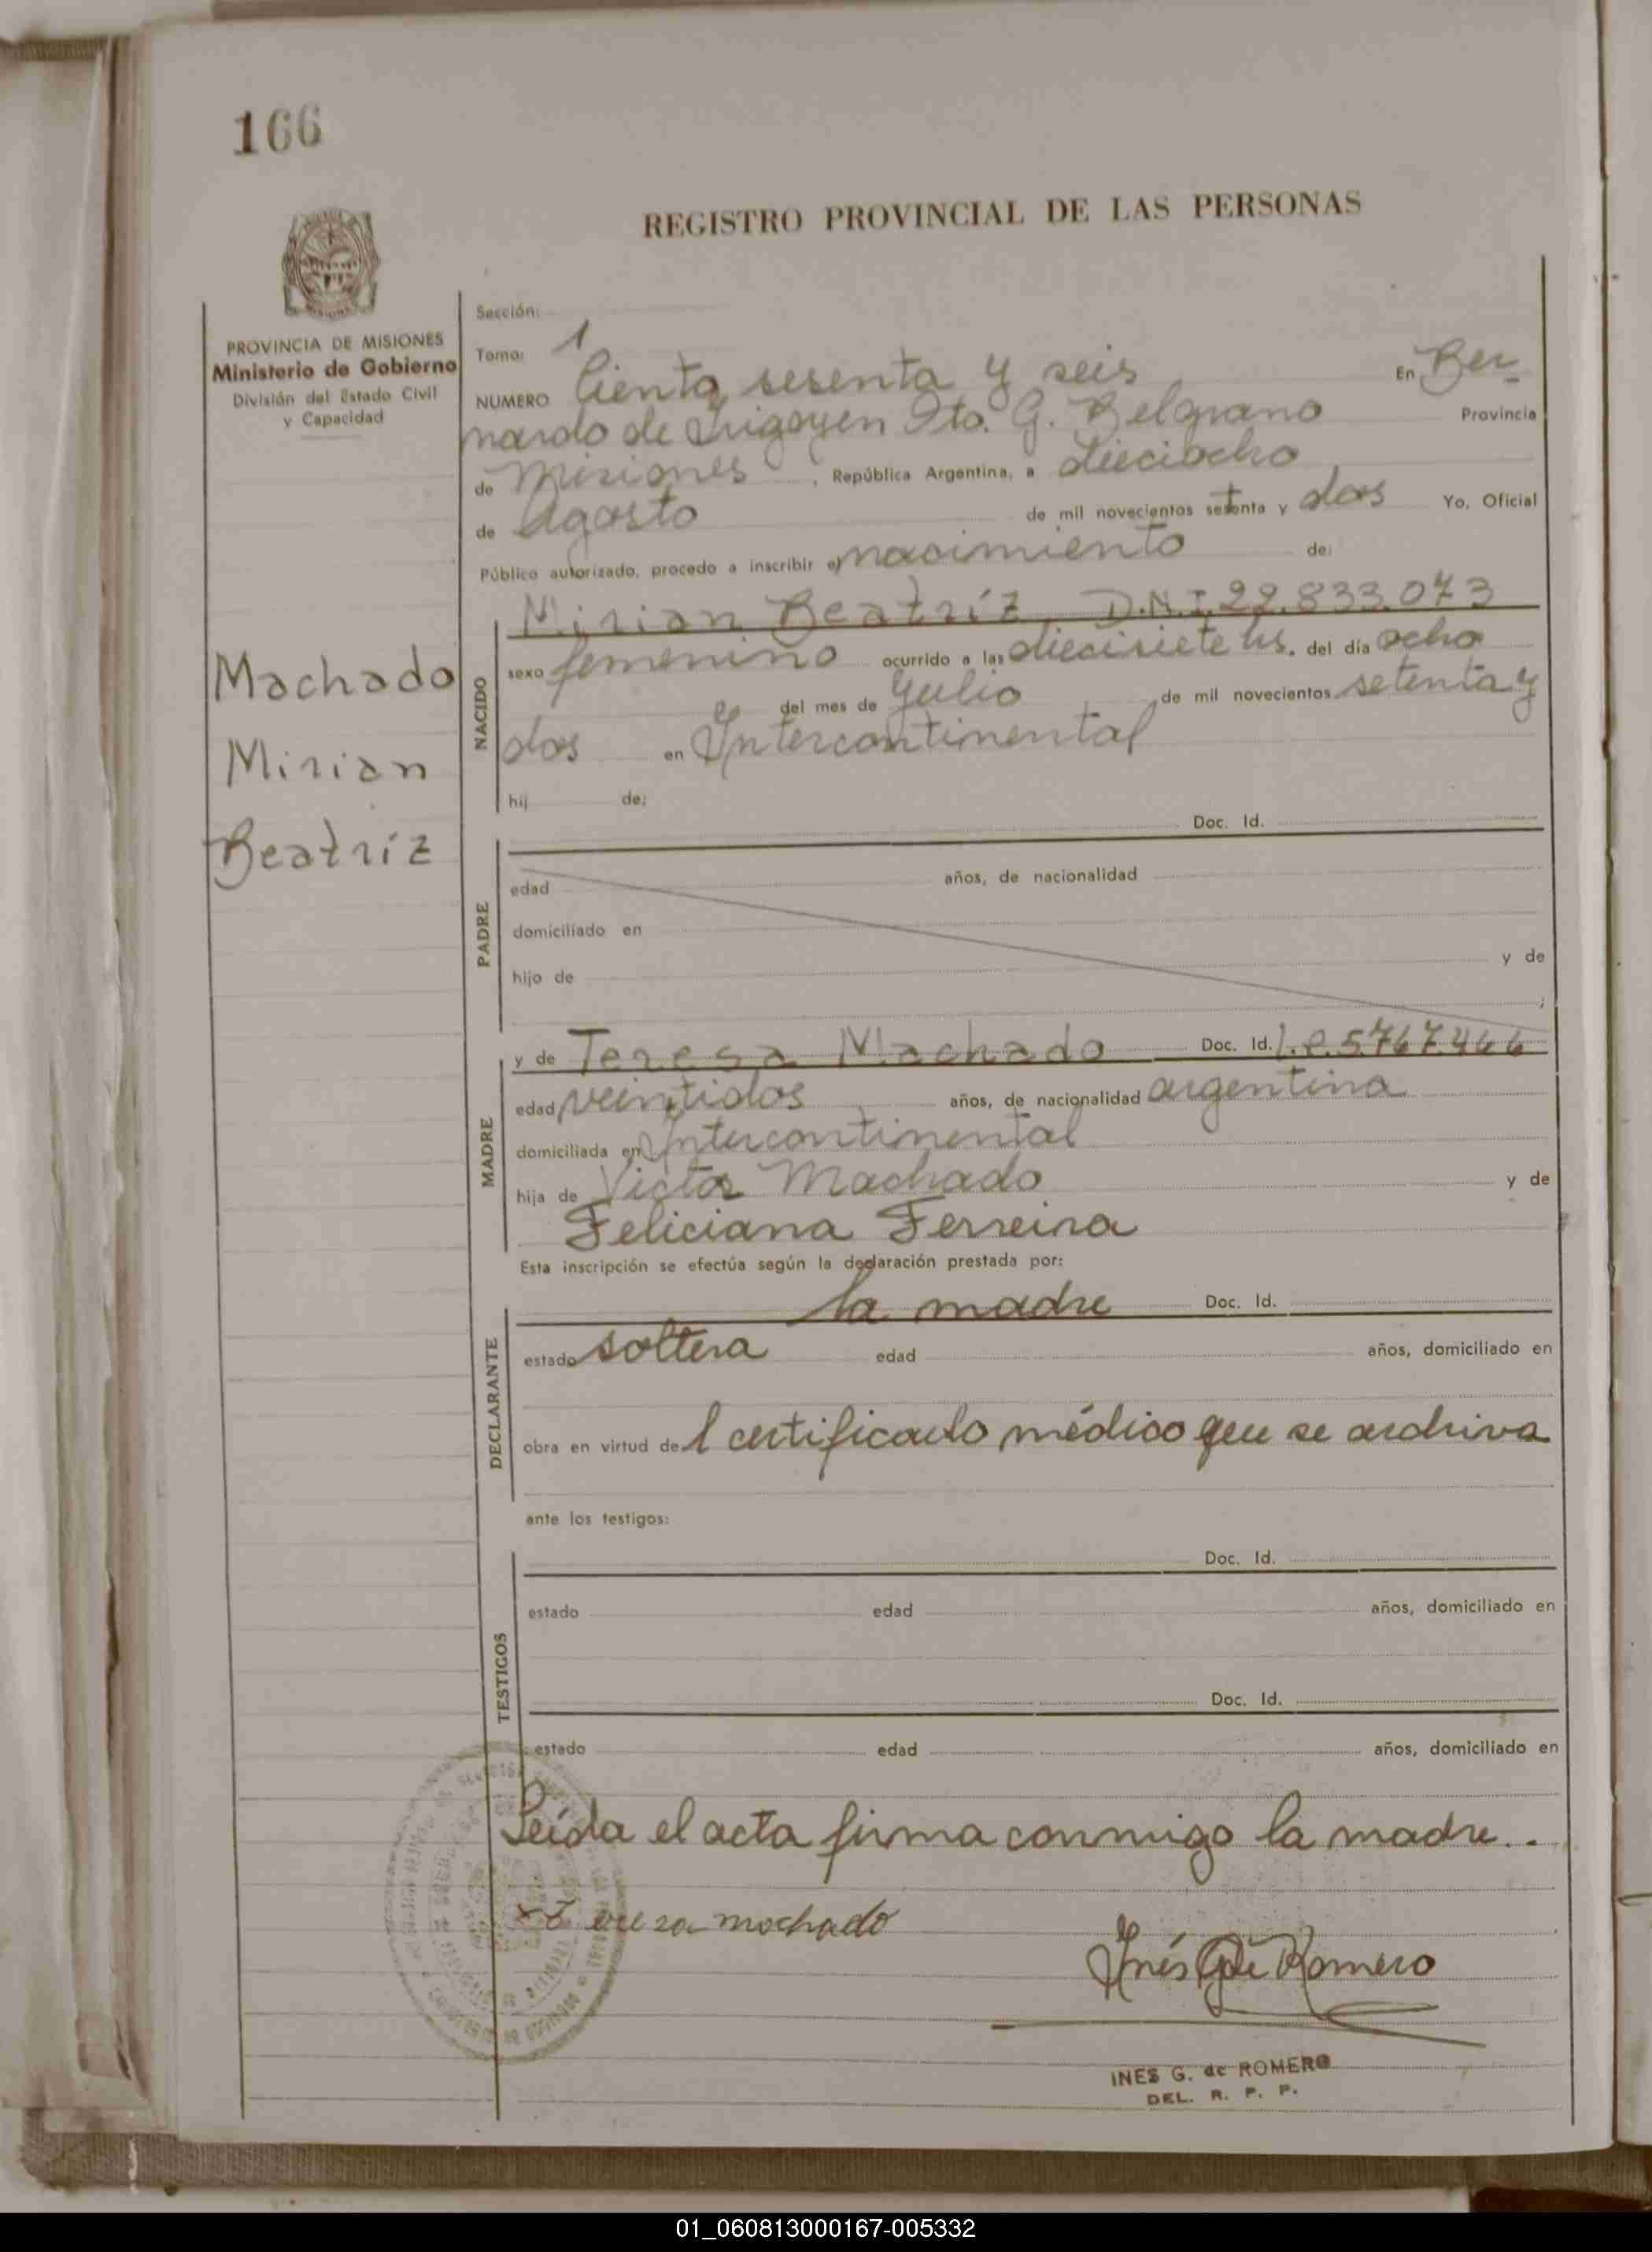 166
REGISTRO PROVINCIAL DE LAS PERSONAS
PROVINCIA DE MISIONES
Ministerio de Gobierno
División del Estado Civil
y Capacidad
Machado
Mirian
Beatríz
Sección:
Tomo: 1
NUMERO Ciento sesenta y seis En Ber-
nardo de Irigoyen Dto. G. Belgrano Provincia
de Misiones, República Argentina, a dieciocho
de Agosto de mil novecientos setenta y dos Yo, Oficial
Público autorizado, procedo a inscribir el nacimiento de:
NACIDO
Mirian Beatríz D.N.I. 22.833.073
sexo femenino ocurrido a las diecisiete hs. del día ocho
del mes de Julio de mil novecientos setenta y
dos en Intercontinental
hij de:
PADRE
Doc. Id.
edad años, de nacionalidad
domiciliado en
hijo de y de
;
MADRE
y de Teresa Machado Doc. Id. L.C. 5.767.466
edad veintidos años, de nacionalidad argentina
domiciliada en Intercontinental
hija de Victor Machado y de
Feliciana Ferreira
Esta inscripción se efectúa según la declaración prestada por:
DECLARANTE
la madre Doc. Id.
estado soltera edad años, domiciliado en
obra en virtud del certificado médico que se archiva
ante los testigos:
TESTIGOS
Doc. Id.
estado edad años, domiciliado en
Doc. Id.
estado edad años, domiciliado en
Leída el acta firma conmigo la madre..
x Teresa machado
Inés G de Romero
INES G. de ROMERO
DEL. R. P. P.
01_060813000167-005332